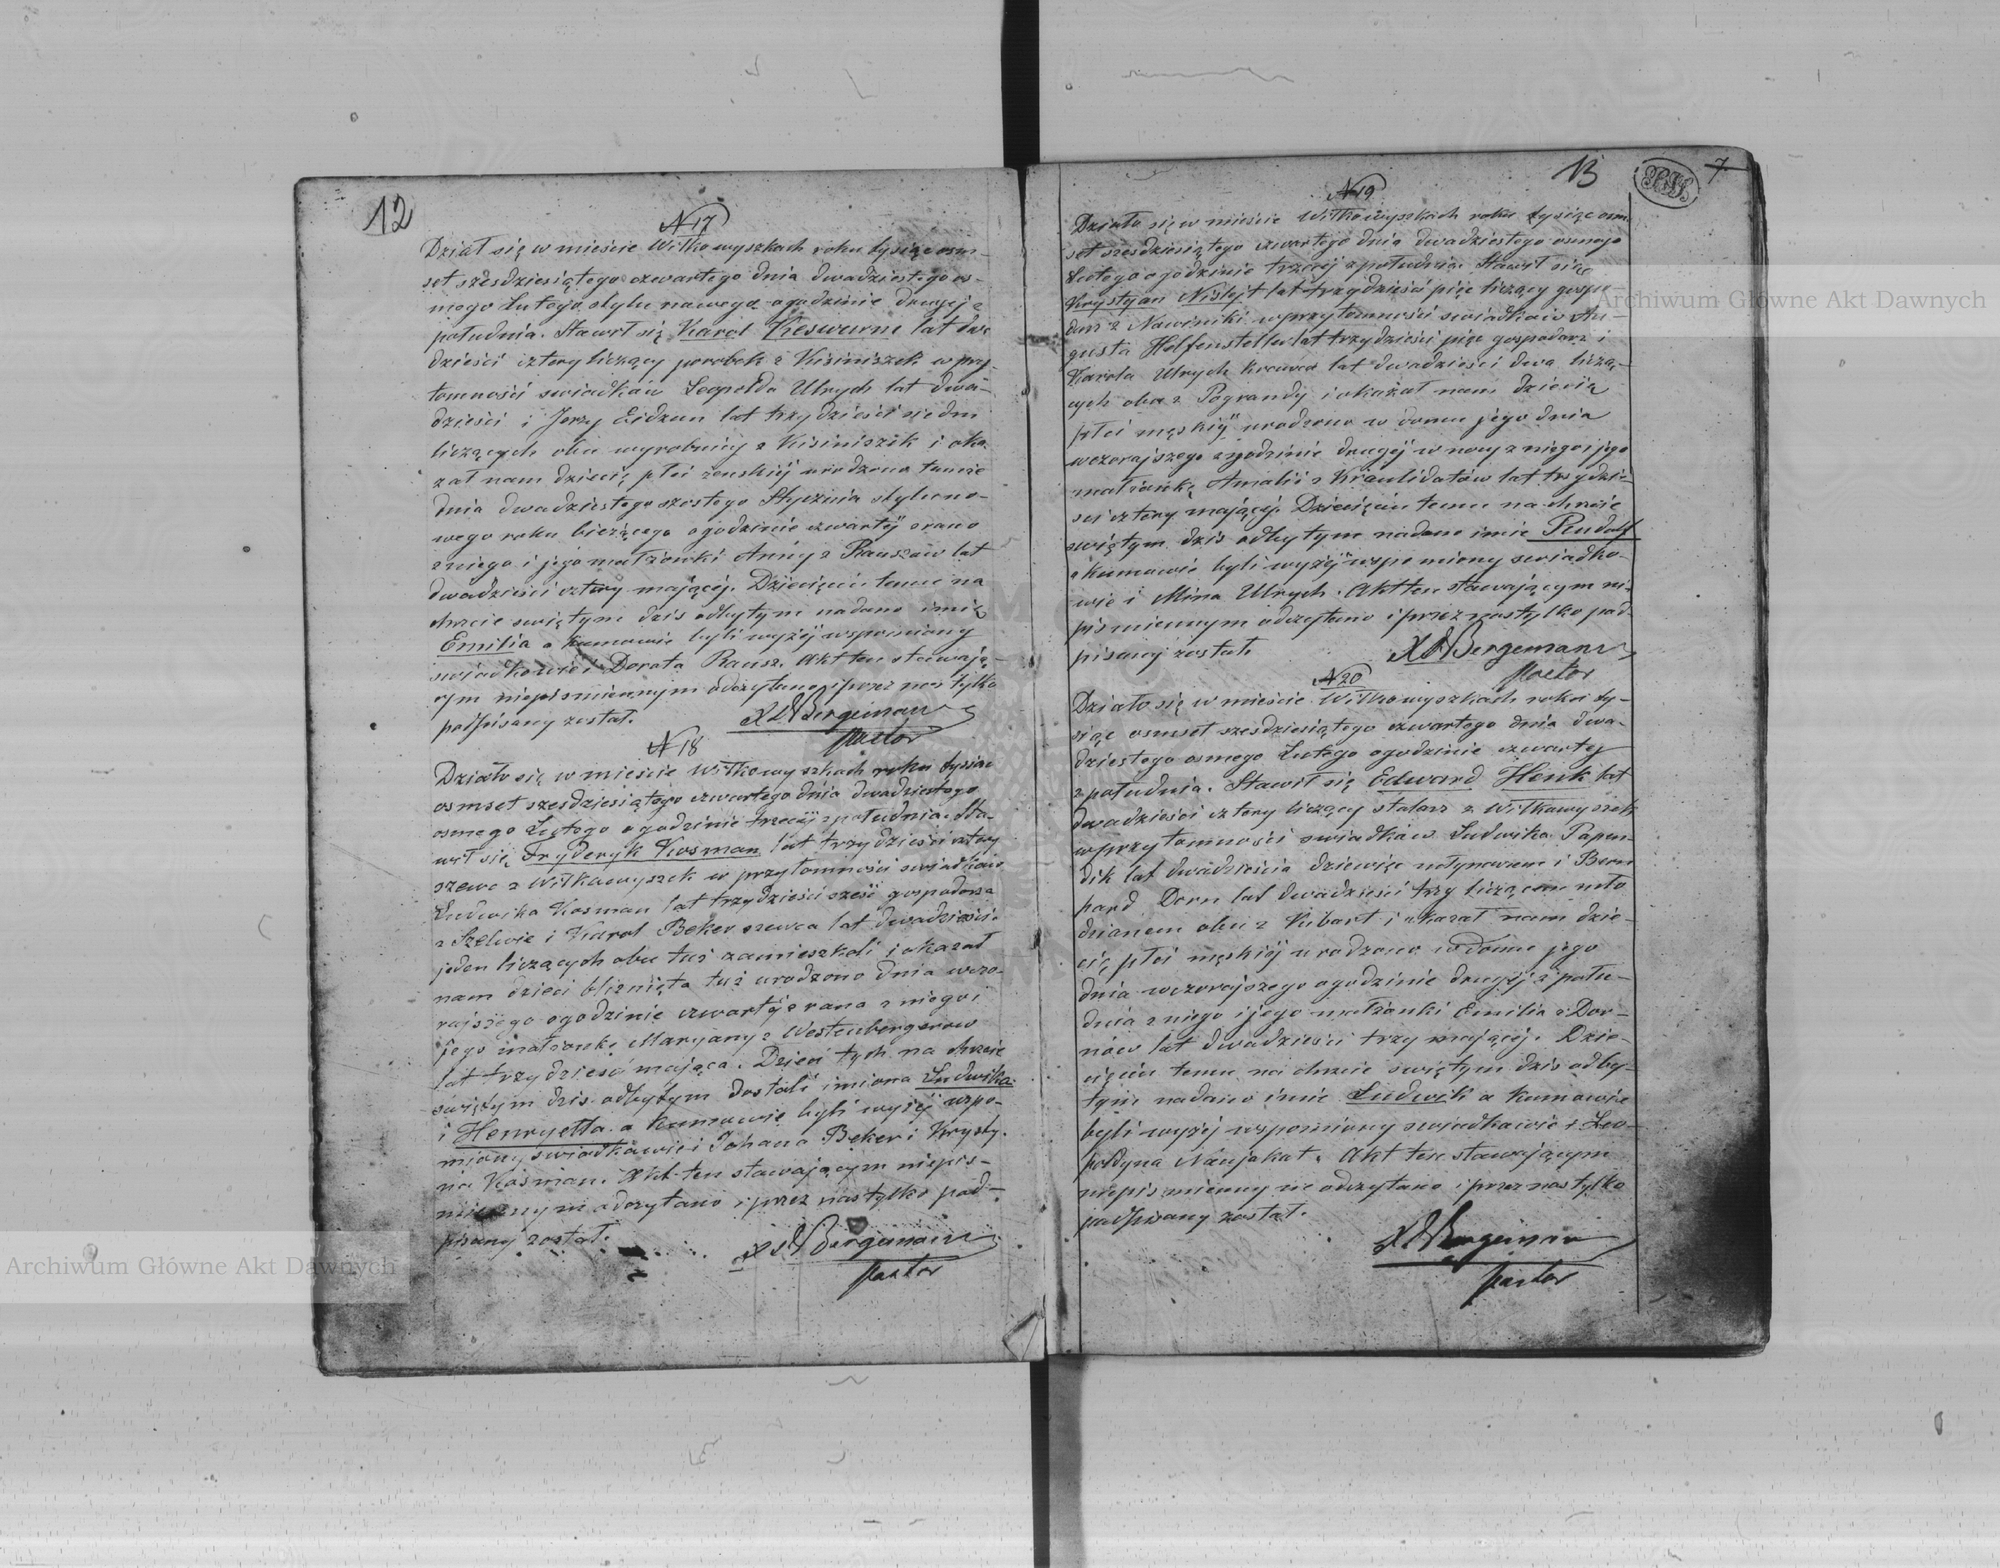 12
N 17
Dział się w mieście Wiłkowyszkach roku tysiąc ośm-
set szesdziesiątego czwartego dnia dwadziestego os-
mego Lutego stylu nowego ogodzinie drugiej z
południa. Stawił się Karol Keswurm lat dwa
dzieści cztery liczący porobek z Kisiniszek w przy-
tomności swiadków Leopolda Ulrych lat dwa-
dzieści i Jerzy Eidzun lat trzydzieści siedm
liczących obu wyrobnicy z Kisiniszek i oka
zał nam dziecię płci zenskiéj urodzone tamże
dnia dwadziestego szostego Stycznia stylu no-
wego roku bieżącego ogodzinie czwartéj zrano
z niego i jego małżonki Anny z Rauszów lat
dwadzieści cztery mającéj. Dziecięciu temu na
chrzcie swiętym dzis odbytym nadano imię
Emilia a kumowie byli wyżéj wspomniony
swiadkowie i Dorota Rausz. Akt ten stawają-
cym niepismiennym odczytano i przez nas tylko
podpisany został.
X Bergemann
Pastor
N 18
Działo się w mieście Wiłkowyszkach roku tysiac
osmset szesdziesiątego czwartego dnia dwadziestego
osmego Lutego ogodzinie trzeciéj z południa. Sta-
wił się Fryderyk Kosman lat trzydzieści cztery
szewc z Wiłkowyszek w przytomności swiadków
Ludwika Kosman lat trzydzieści sześć gospodarza
z Szelwie i Karol Beker szewca lat dwadzieści
jeden liczących obu tuż zamieszkali i okazał
nam dzieci bliznięta tuż urodzone dnia wczo-
rajszego ogodzinie czwartéj z rana z niego i
jego małzonkę Maryany z Westenbergerow
lat trzydzieść mająca. Dzieci tych na chrzcie
swiętym dzis odbytym dostali imiona Ludwika
i Henryetta a kumowie byli wyżéj wspo-
miony swiadkowie i Johana Beker i Krysty-
na Kosman. Akt ten stawającym niepis-
miennym odczytano i przez nas tylko pod-
pisany został.
X Bergemann
Pastor
13
7
N 19
Działo się w mieście Wiłkowyszkach roku tysiąc osm
set szesdziesiątego czwartego dnia dwadziestego osmego
Lutego ogodzinie trzeciéj z południa. Stawił się
Krystyan Nislejt lat trzydzieści pięc liczący gospo-
darz z Nawiniki w przytomności swiadków Au-
gusta Holfensteller lat trzydzieści pięc gospodarz i
Karola Ulrych krawca lat dwadzieści dwa liczą-
cych obu z Pograndy i okazał nam dziecię
płci męskiéj urodzone w domu jego dnia
wczorajszego ogodzinie drugéj w nocy z niego i jego
małzonkę Amalii z Kraulidatów lat trzydzie-
sci cztery mającéj. Dziecięciu temu na chrzcie
swiętym dzis odbytym nadano imie Rudolf
a kumowie byli wyżéj wspomiony swiadko-
wie i Mina Ulrych. Akt ten stawającym nie-
pismiennym odczytano i przez nas tylko pod-
pisany został.
X Bergemann
Pastor
N 20
Działo się w mieście Wiłkowyszkach roku ty-
siąc osmset szesdziesiątego czwartego dnia dwa-
dziestego osmego Lutego ogodzinie czwartej
z południa. Stawił się Edward Henk lat
dwadzieści cztery liczący stolarz z Wiłkowyszek
w przytomności swiadków Ludwika Papen-
dik lat dwadzieścia dziewięc młynarzem i Bern
hard Dorn lat dwadzieści trzy liczącem mło
dzianem obu z Kibart i okazał nam dzie-
cię płci męskiéj urodzone w domu jego
dnia wczorajszego ogodzinie drugéj z połu-
dnia z niego i jego małżonki Emilia z Dor-
nów lat dwadzieści trzy mającéj. Dzie-
cięciu temu na chrzcie swiętym dzis odby-
tym nadano imie Ludwik a kumowie
byli wyżéj wspomiony swiadkowie i Leo-
poldyna Naujokat. Akt ten stawającym
niepismienny m odczytano i przez nas tylko
podpisany został.
X Bergemann
Pastor
Archiwum Główne Akt Dawnych
Archiwum Główne Akt Dawnych